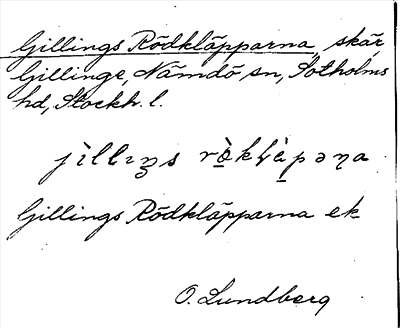 Gillings Rödkläpparna, skär,
Gillinge, Nämdö sn, Sotholms
hd, Stockh. l.
Gillings Rödkläpparna ek
O. Lundberg